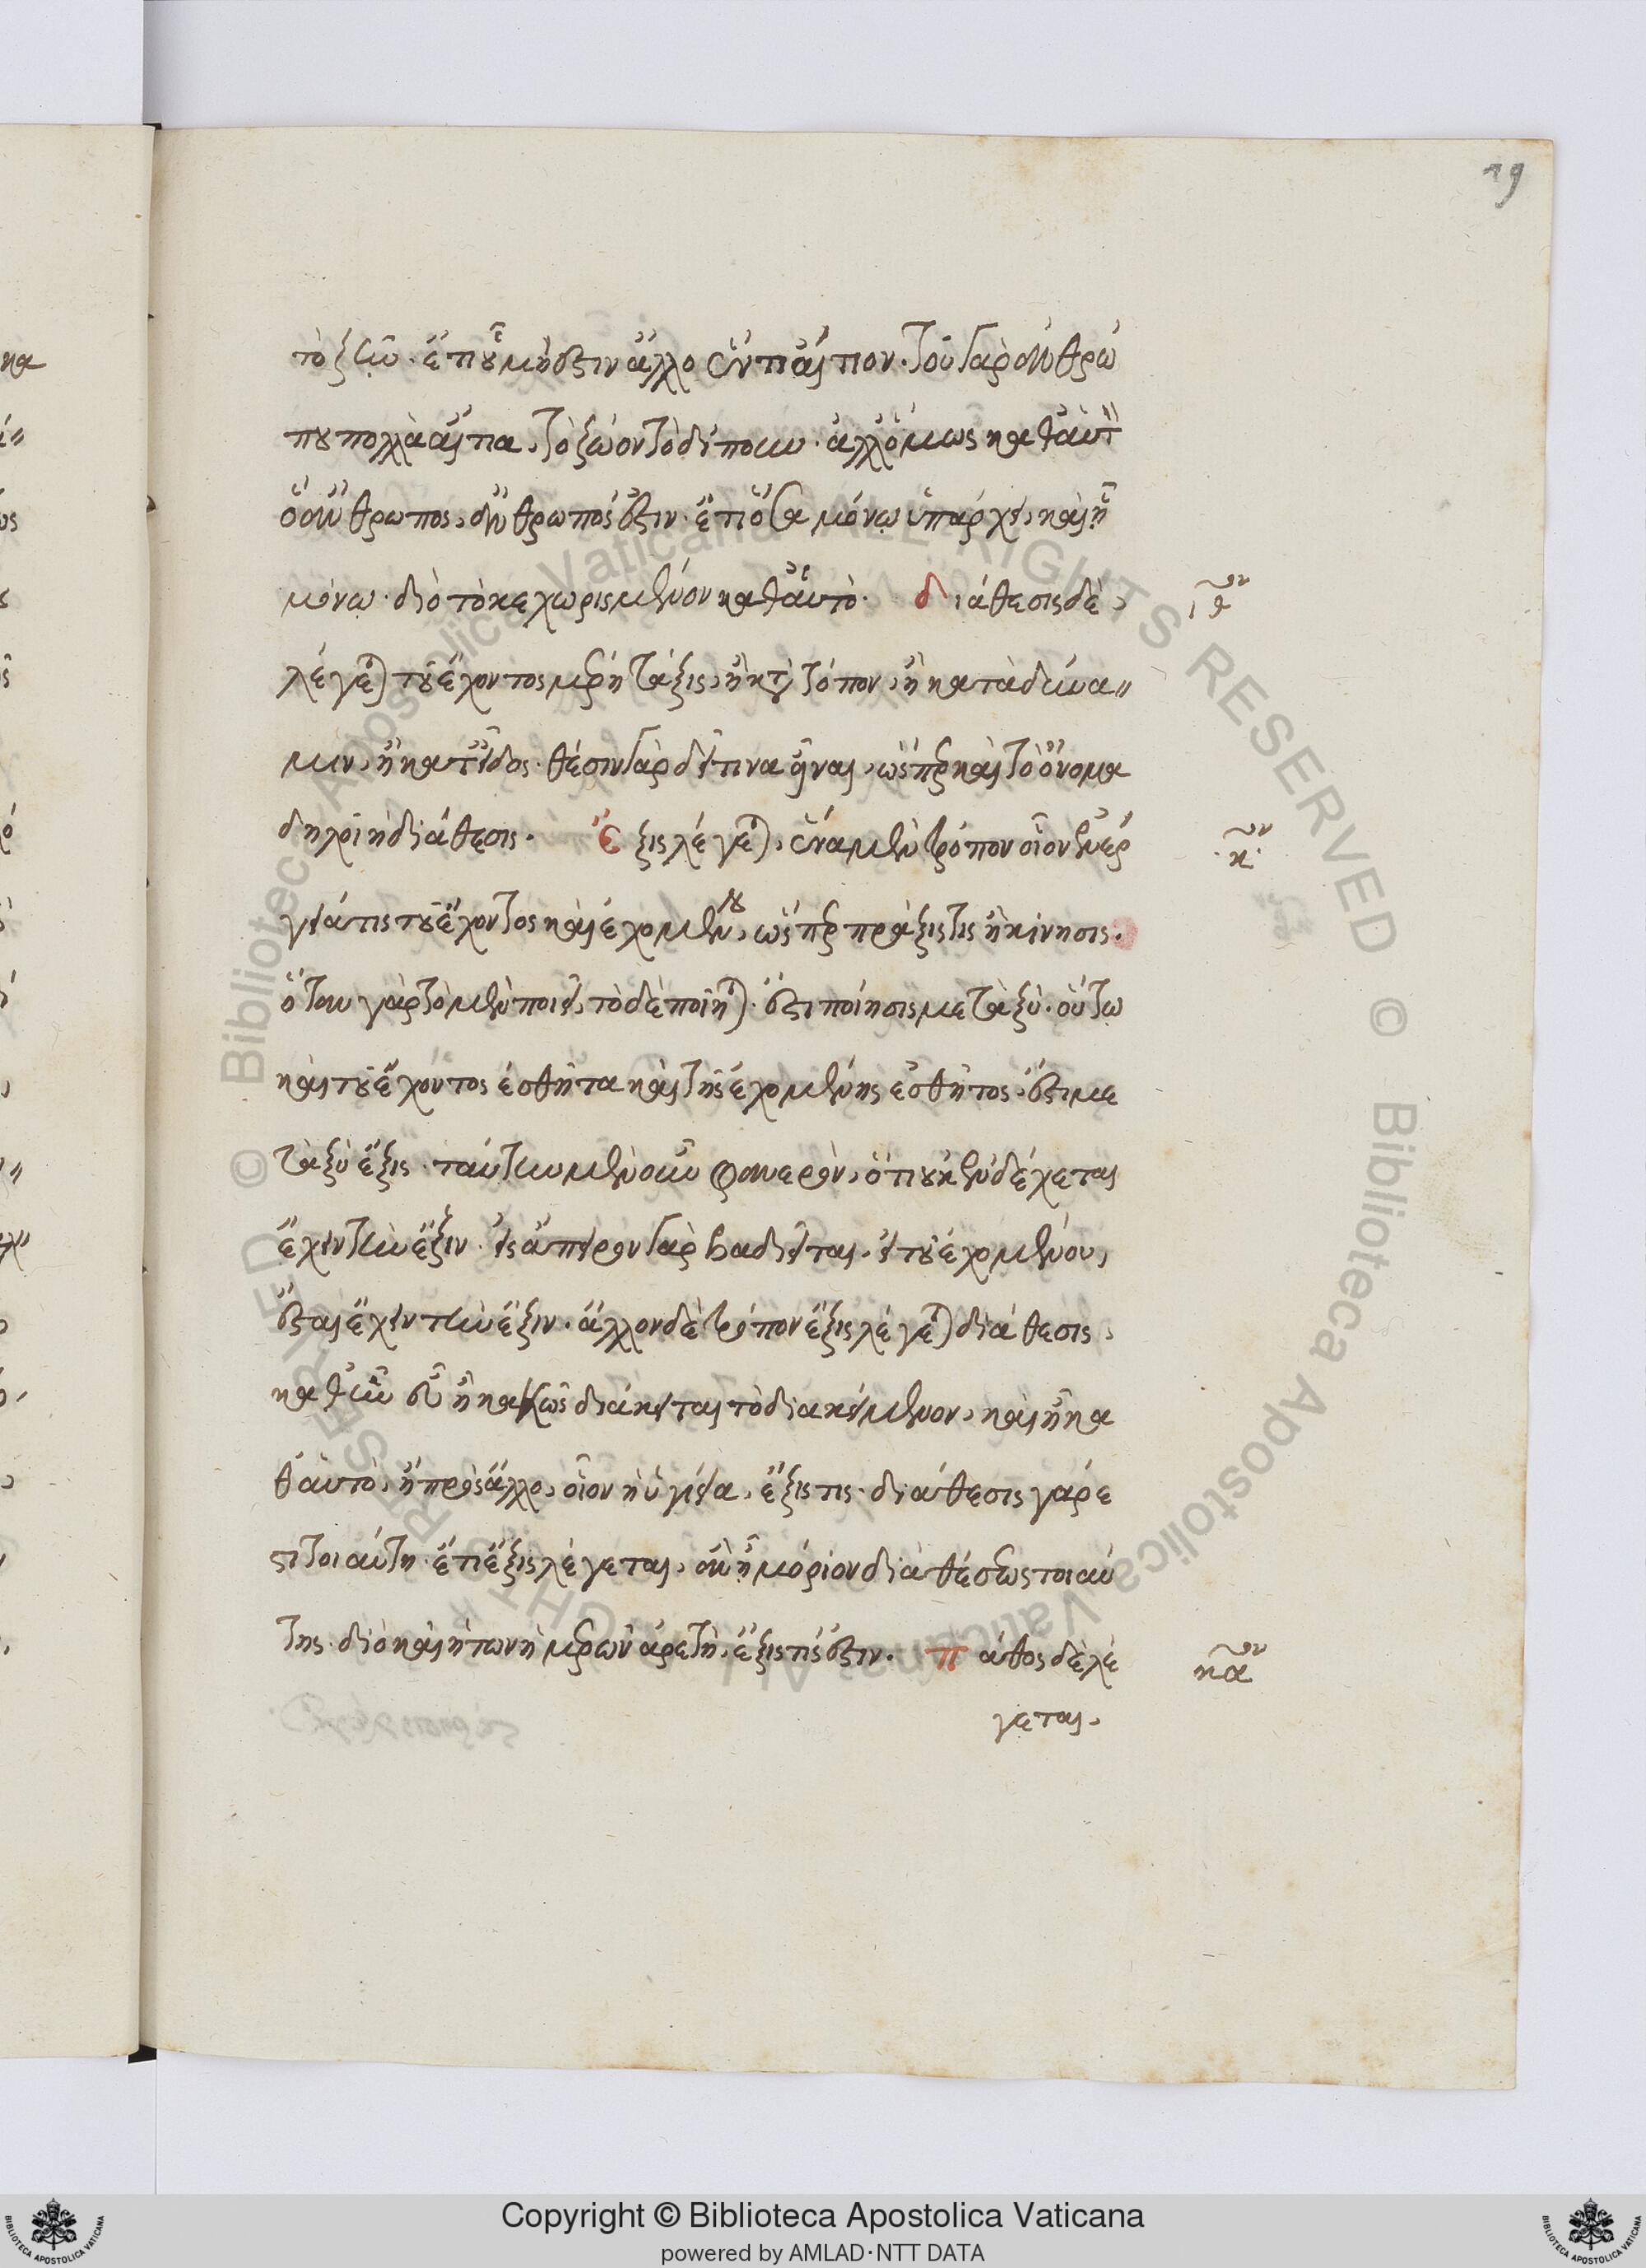 19
τὸ ζῆν. ἔτι οὗ μή ἐστιν ἄλλο ἕν τι αἴτιον. τοῦ γὰρ ἀνθρώ
που πολλὰ αἴτια, τὸ ζῶον τὸ δίπουν. ἀλλ' ὅμως καθ' αὑτ
ὁ ἄνθρωπος, ἄνθρωπός ἐστιν. ἔτι ὅσα μόνω ὑπάρχει, καὶ ἧ
μόνω. διὸ τὸ κεχωρισμένον καθ' αὑτό. διάθεσις δὲ,
ιθον
λέγεται τοῦ ἔχοντος μέρη τάξις, ἢ κατὰ τόπον, ἢ κατὰ δύνα
μιν, ἢ κατ' εἶδος. θέσιν γὰρ δεῖ τινα εἶναι, ὥσπερ καὶ τὸ ὄνομα
δηλοῖ ἡ διάθεσις. ἕξις λέγεται, ἕνα μὲν τρόπον οἷον ἐνέρ
κον
γειά τις τοῦ ἔχοντος καὶ ἐχομένου, ὥσπερ πρᾶξις τις ἢ κίνησις.
ὅταν γὰρ τὸ μὲν ποιεῖ, τὸ δὲ ποιῆται. ἔστι ποίησις μεταξύ. οὕτω
καὶ τοῦ ἔχοντος ἐσθῆτα καὶ τῆς ἐχομένης ἐσθῆτος, ἔστι με
ταξὺ ἕξις. ταύτην μὲν οὖν φανερὸν, ὅτι οὐκ ἐνδέχεται
ἔχειν τὴν ἕξιν. εἰς ἄπειρον γὰρ βαδιεῖται. εἰ τοῦ ἐχομένου,
ἔσται ἔχειν τὴν ἕξιν. ἄλλον δὲ τρόπον ἕξις λέγεται διάθεσις,
καθ' ἣν εὖ ἢ κακῶς διάκειται τὸ διακείμενον, καὶ ἢ κα
θ' αὑτὸ, ἢ πρὸς ἄλλο, οἷον ἡ ὑγίεια, ἕξις τις. διάθεσις γάρ ἐ
στι τοιαύτη. ἔτι ἕξις λέγεται, ἂν ἦ μόριον διαθέσεως τοιαύ
της. διὸ καὶ ἡ τῶν ἡμερῶν ἀρετὴ, ἕξις τίς ἐστιν. πάθος δὲ λέ
καον
γεται.
Copyright © Biblioteca Apostolica Vaticana
powered by AMLAD·NTT DATA